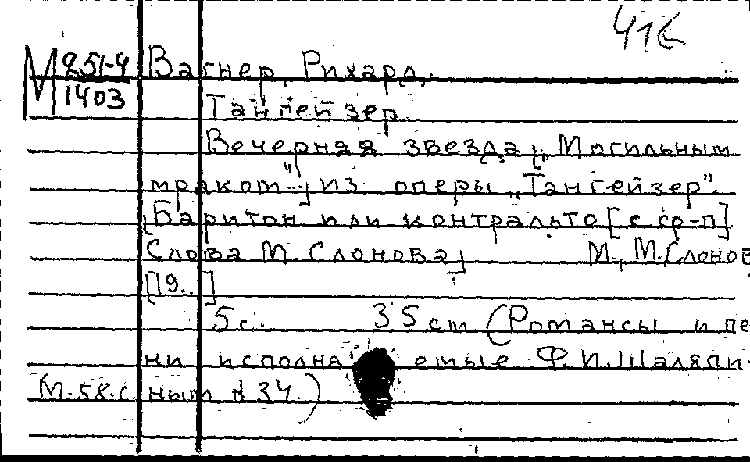 416
М 251-4 Вагнер, Рихард.
1403 Тангейзер.
Вечерняя звезда [„Могильным
мраком"] из оперы „Тангейзер".
[Баритон или контральто [с ср-п]
Слова М. Слонова] М., М. Слонов
[19..]
5 с. 35 cm (Романсы и пе
ни исполня емые Ф. И. Шаляпи-
М.58.с. ным N 34)